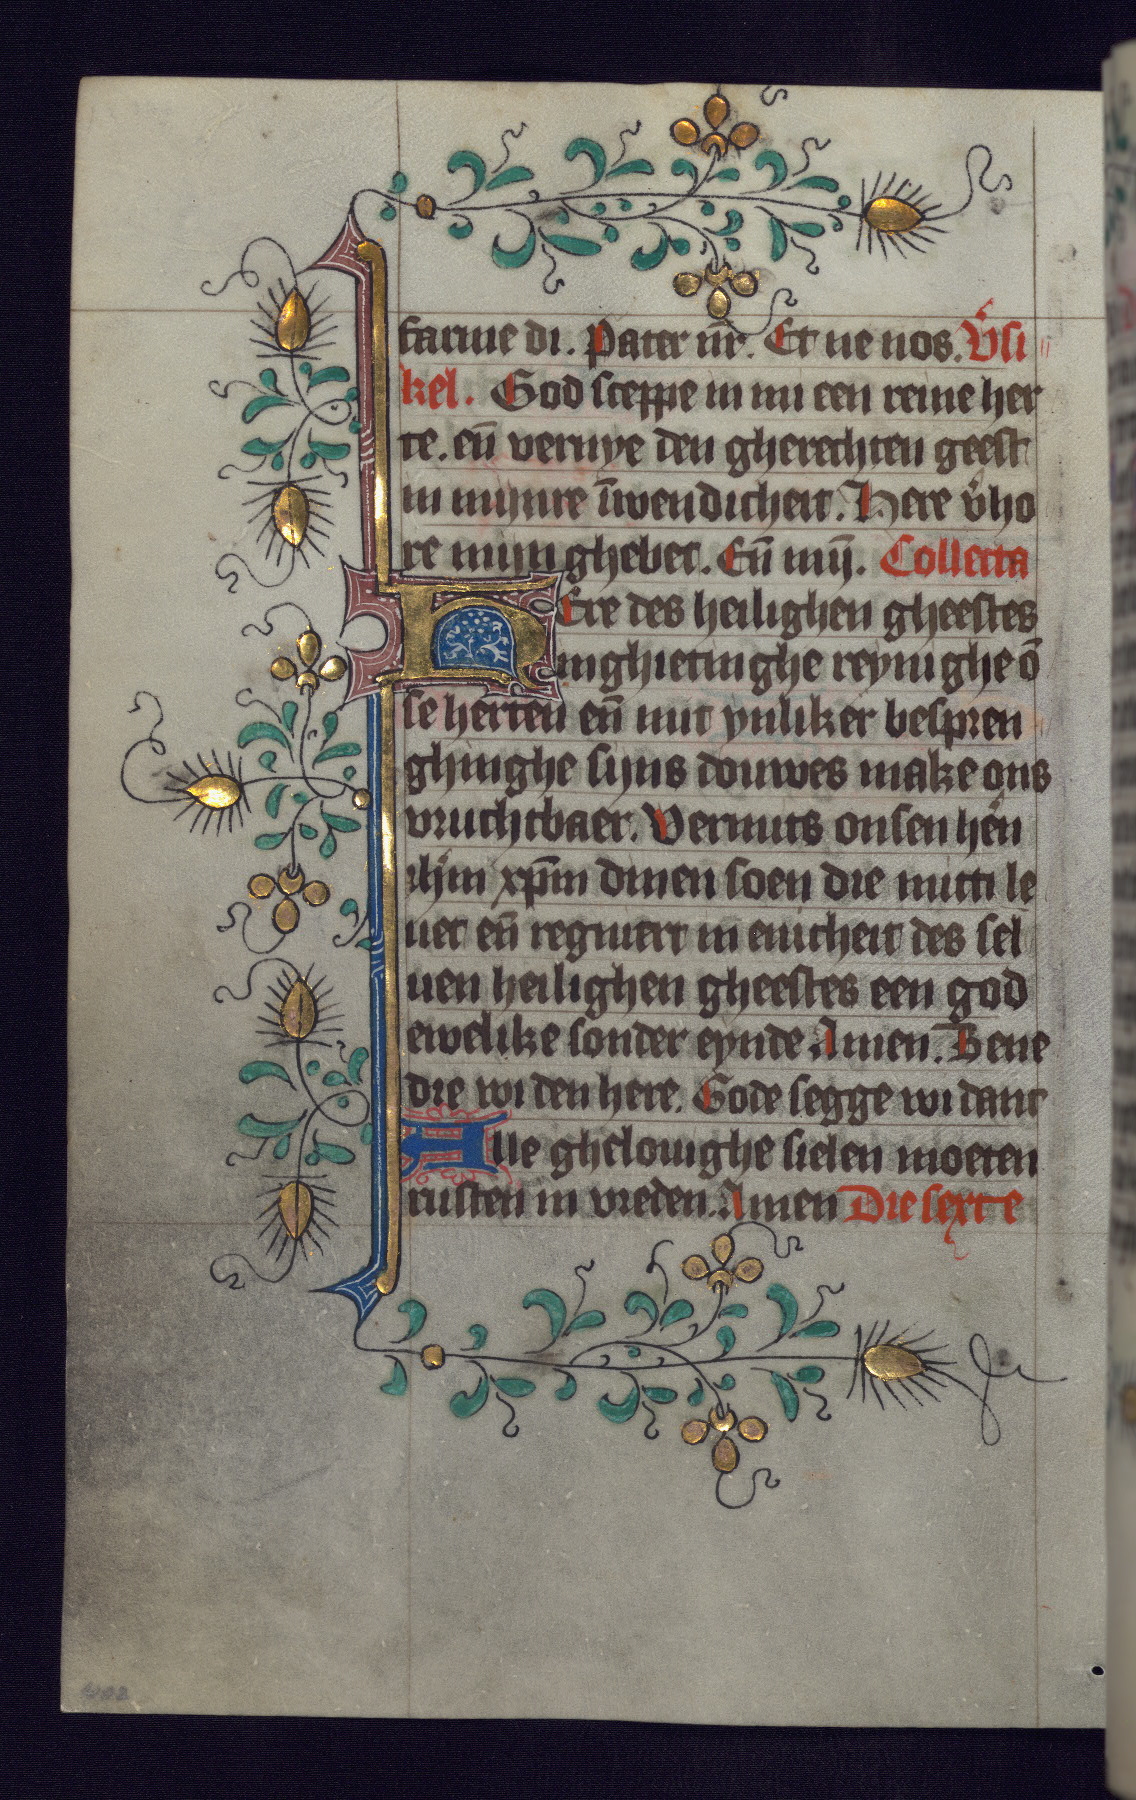 farme di. Pater nr̄. Et ne nos. V̓si
kel. God sceppe in mi een reine her
te. en̄ vernye den gherechten geest
in mynre īwendicheit. Here v̓ho
re mijn ghebet. En̄ mij̄. Collecta
HEre des heilighen gheestes
inghietinghe reynighe ō
se herten en̄ mit ynliker bespren
ghinghe sijns douwes make ons
vruchtbaer. Vermits onsen hēn
ih̄m xp̄m dinen soen die mitti le
uet en̄ regniert in enicheit des sel
uen heilighen gheestes een god
ewelike sonder eynde. Amen. Bene
die wi den here. Gode segge wi danc
Alle ghelouighe sielen moeten
rusten in vreden. Amen Die sexte